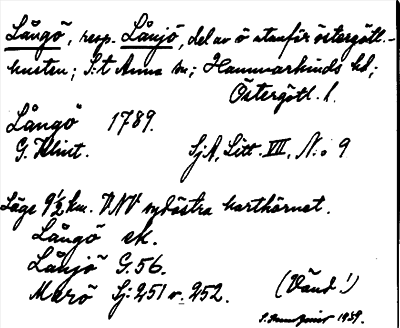 Långö, resp. Lånjö, del av ö utanför östergötl.-
kusten; S:t Anna sn; Hammarkinds hd;
Östergötl. l.
Långö 1789.
G. Klint. SjA, Litt. VIII, N:o 9
Läge 9 1/2 km. VNV sydöstra karthörnet.
Långö ek.
Lånjö G. 56.
Marö Sj: 251 o. 252. (Vänd!)
1939.